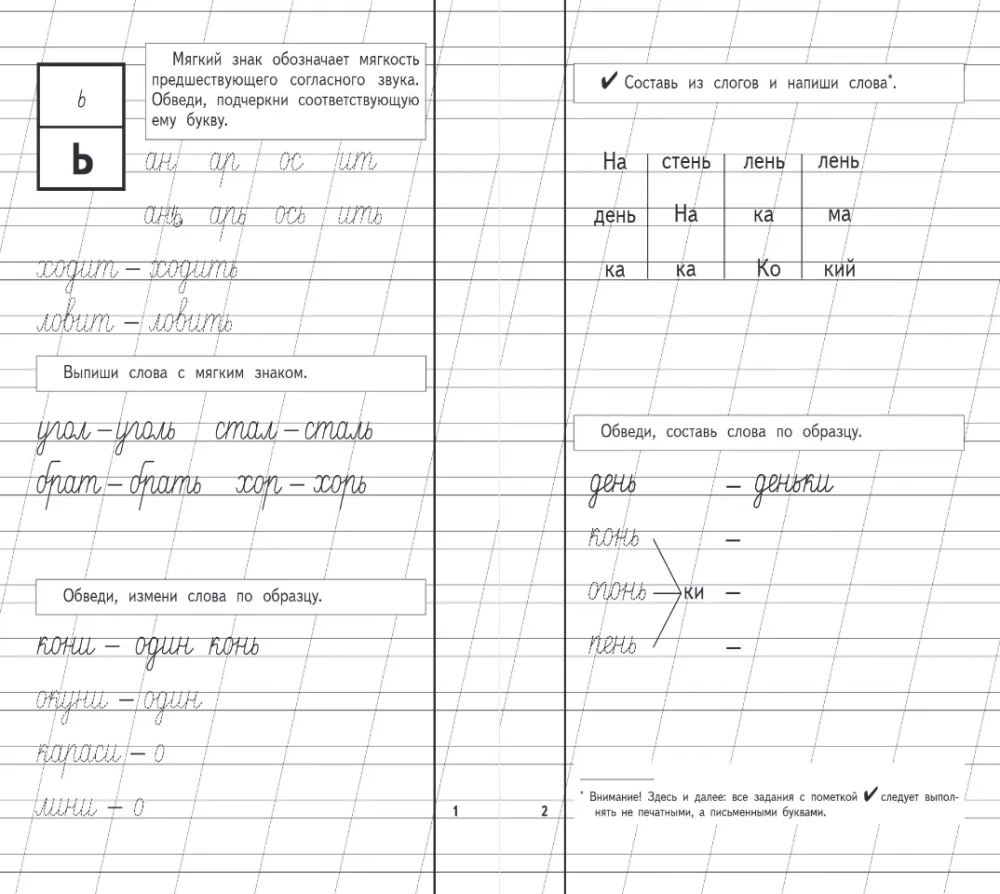 ь
Ь
Мягкий знак обозначает мягкость
предшествующего согласного звука.
Обведи, подчеркни соответствующую
ему букву.
ан ар ос ит
ань арь ось ить
ходит – ходить
ловит – ловить
Выпиши слова с мягким знаком.
угол – уголь стал – сталь
брат – брать хор – хорь
Обведи, измени слова по образцу.
кони – один конь
окуни – один
караси – о
лини – о
1
✔ Составь из слогов и напиши слова*.
На стень лень лень
день На ка ма
ка ка Ко кий
Обведи, составь слова по образцу.
день – деньки
конь –
огонь ки –
пень –
* Внимание! Здесь и далее: все задания с пометкой ✔ следует выпол-
нять не печатными, а письменными буквами.
2